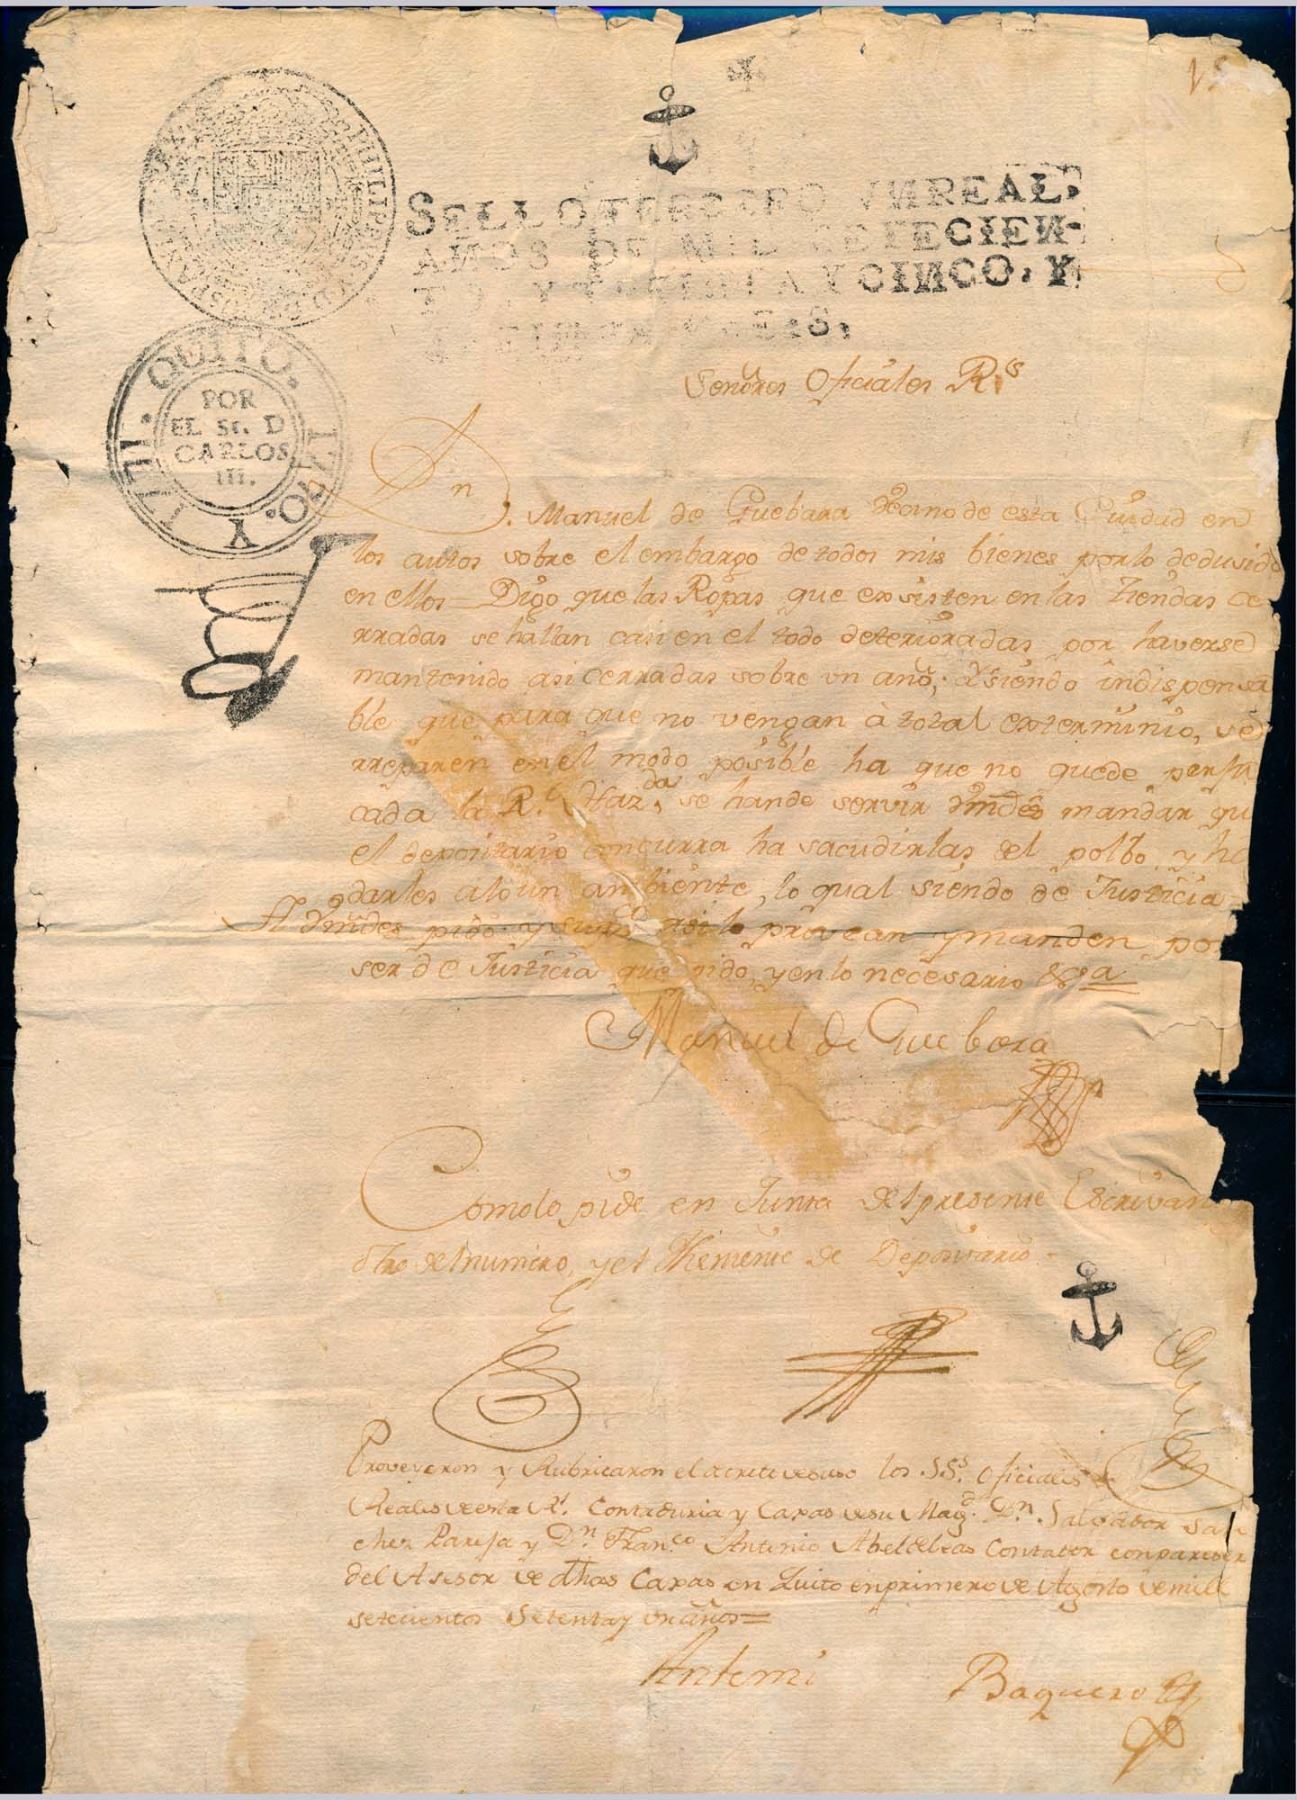 PHILIPPUS V D G HISPANIAR
SELLO TERCERO VNREAL,
AÑOS DE MIL SETECIEN-
TOS Y TREINTA Y CINCO, Y
TREINTA Y SEIS,
QUITO. 1770. Y 1771.
POR
EL Sr. D
CARLOS
III.
Señores Oficiales Rs
Dn. Manuel de Guebara vecino de esta Ciudad en
los autos sobre el embargo de todos mis bienes por lo dedusido
en ellos = Digo que las Ropas que exsisten en las tiendas ce
rradas se hallan casi en el todo deterioradas por haverse
mantenido asi cerradas sobre un año, y siendo indispensa
ble que para que no vengan à total exterminio, se
rreparen en el modo posible ha que no quede perju
cada la Rl. Hazda. se han de servir Vmdes mandar qu
el depositario concurra ha sacudirlas del polbo, y ha
darles algun ambiente, lo qual siendo de Justicia =
A Vmdes pido y supco. asi lo provean y manden, por
ser de Justicia que pido, y en lo necesario &a
Manuel de Guebara
Como lo pide en Junta del presente Escrivano
otro del numero, y el Theniente de Depositario.
Proveyeron y Rubricaron el decreto de suso los SSs. Oficiales
Reales de esta Rl. Contaduria y Caxas de su Magd. Dn. Salvador San
chez Pareja y Dn. Franco Antonio Contador con pareser
del Asesor de dhas Caxas en Quito en primero de Agosto de mill
setecientos Setenta y un años =
Antemi
Baquero